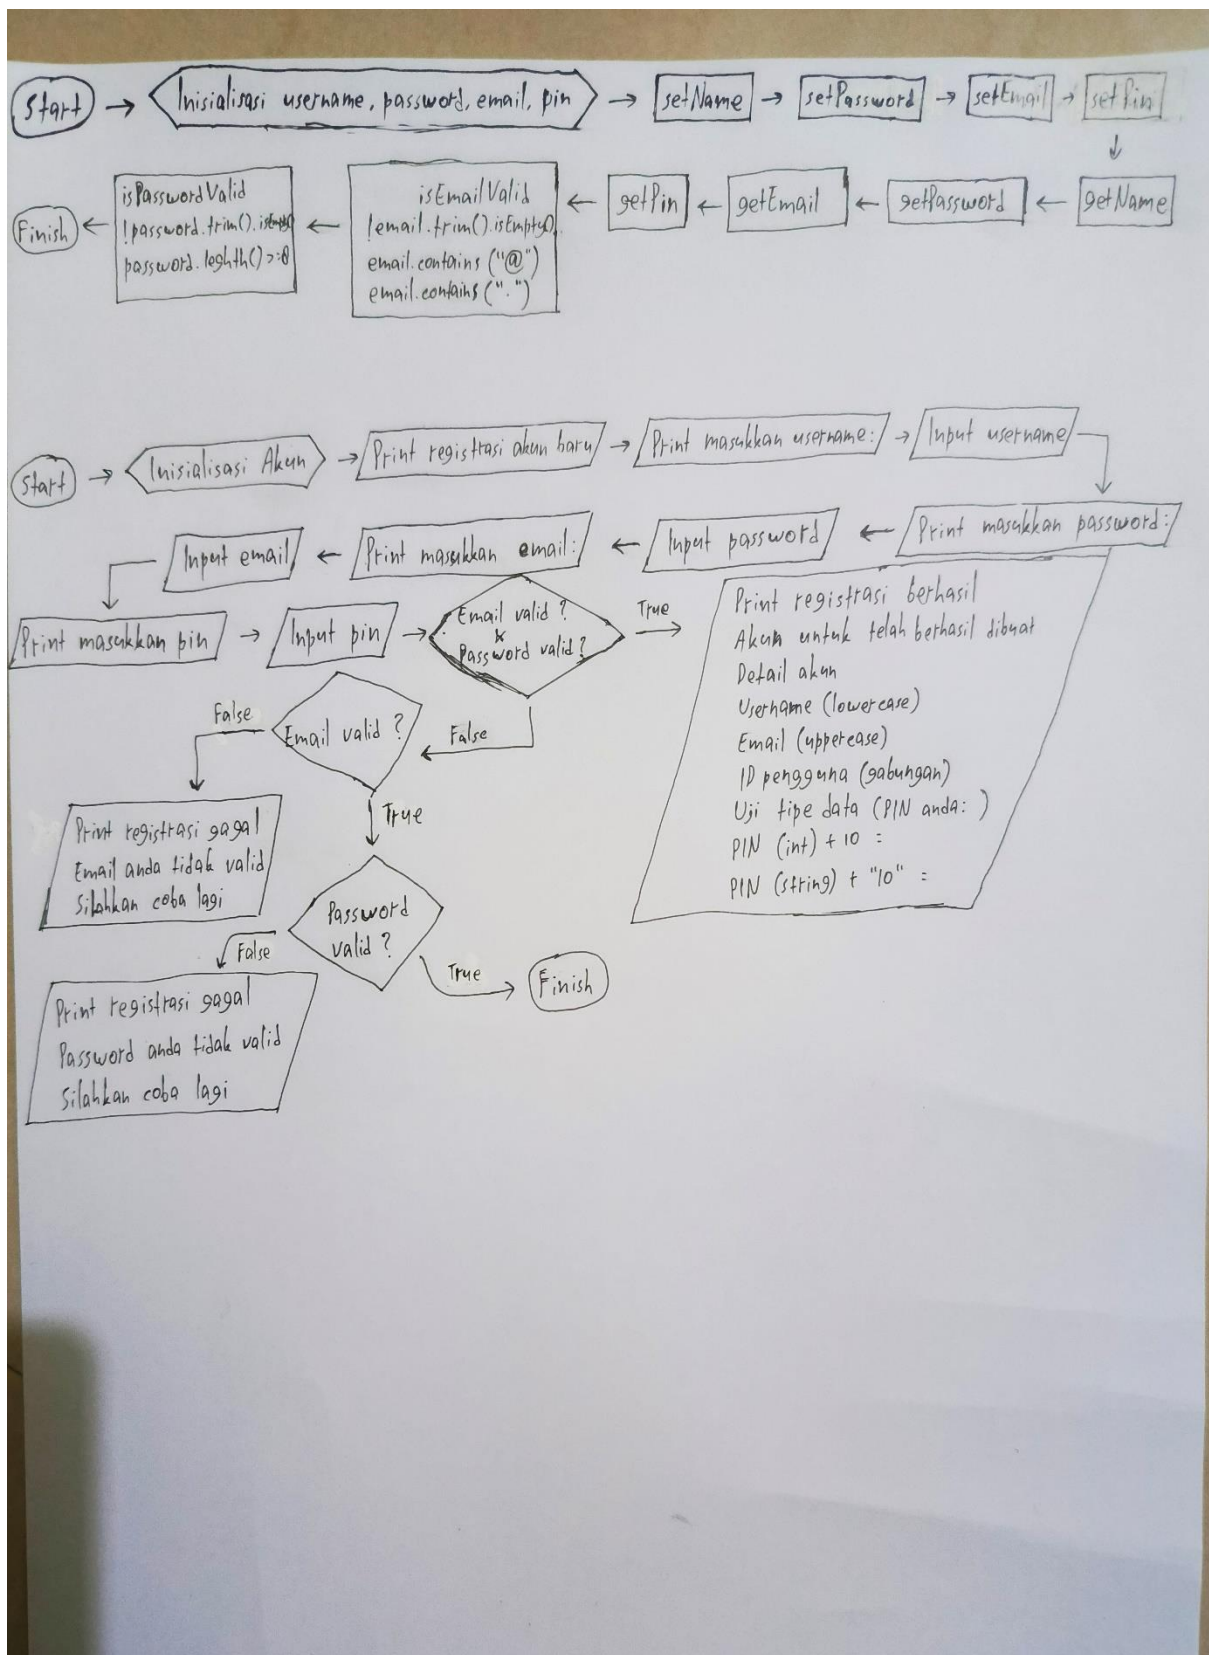 Start
Inisialisasi username, password, email, pin
setName
setPassword
setEmail
setPin
getName
getPassword
getEmail
getPin
isEmailValid
!email.trim().isEmpty()
email.contains("@")
email.contains(".")
isPasswordValid
!password.trim().isEmpty()
password.leghth() >=8
Finish
Start
Inisialisasi Akun
Print registrasi akun baru
Print masukkan username:
Input username
Print masukkan password:
Input password
Print masukkan email:
Input email
Print masukkan pin
Input pin
Email valid?
&
Password valid?
True
Print registrasi berhasil
Akun untuk telah berhasil dibuat
Detail akun
Username (lowercase)
Email (uppercase)
ID pengguna (gabungan)
Uji tipe data (PIN anda: )
PIN (int) + 10 =
PIN (string) + "10" =
False
Email valid ?
False
Print registrasi gagal
Email anda tidak valid
Silahkan coba lagi
True
Password
valid ?
False
Print registrasi gagal
Password anda tidak valid
Silahkan coba lagi
True
Finish